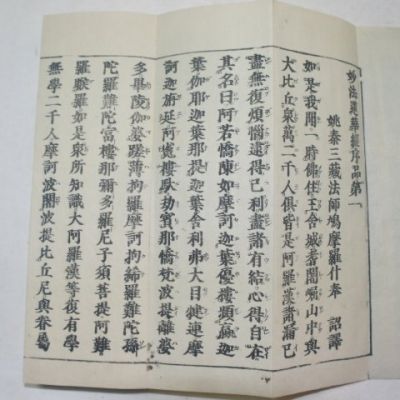 妙法蓮華經序品第一
姚秦三藏法師鳩摩羅什奉 詔譯
如是我聞一時佛住王舍城耆闍崛山中與
大比丘衆萬二千人俱皆是阿羅漢諸漏已
盡無復煩惱逮得己利盡諸有結心得自在
其名曰阿若憍陳如摩訶迦葉優樓頻螺迦
葉伽耶迦葉那提迦葉舍利弗大目犍連摩
訶迦旃延阿㝹樓馱劫賓那憍梵波提離婆
多畢陵伽婆蹉薄拘羅摩訶拘絺羅難陀孫
陀羅難陀富樓那彌多羅尼子須菩提阿難
羅睺羅如是衆所知識大阿羅漢等復有學
無學二千人摩訶波闍波提比丘尼與眷屬